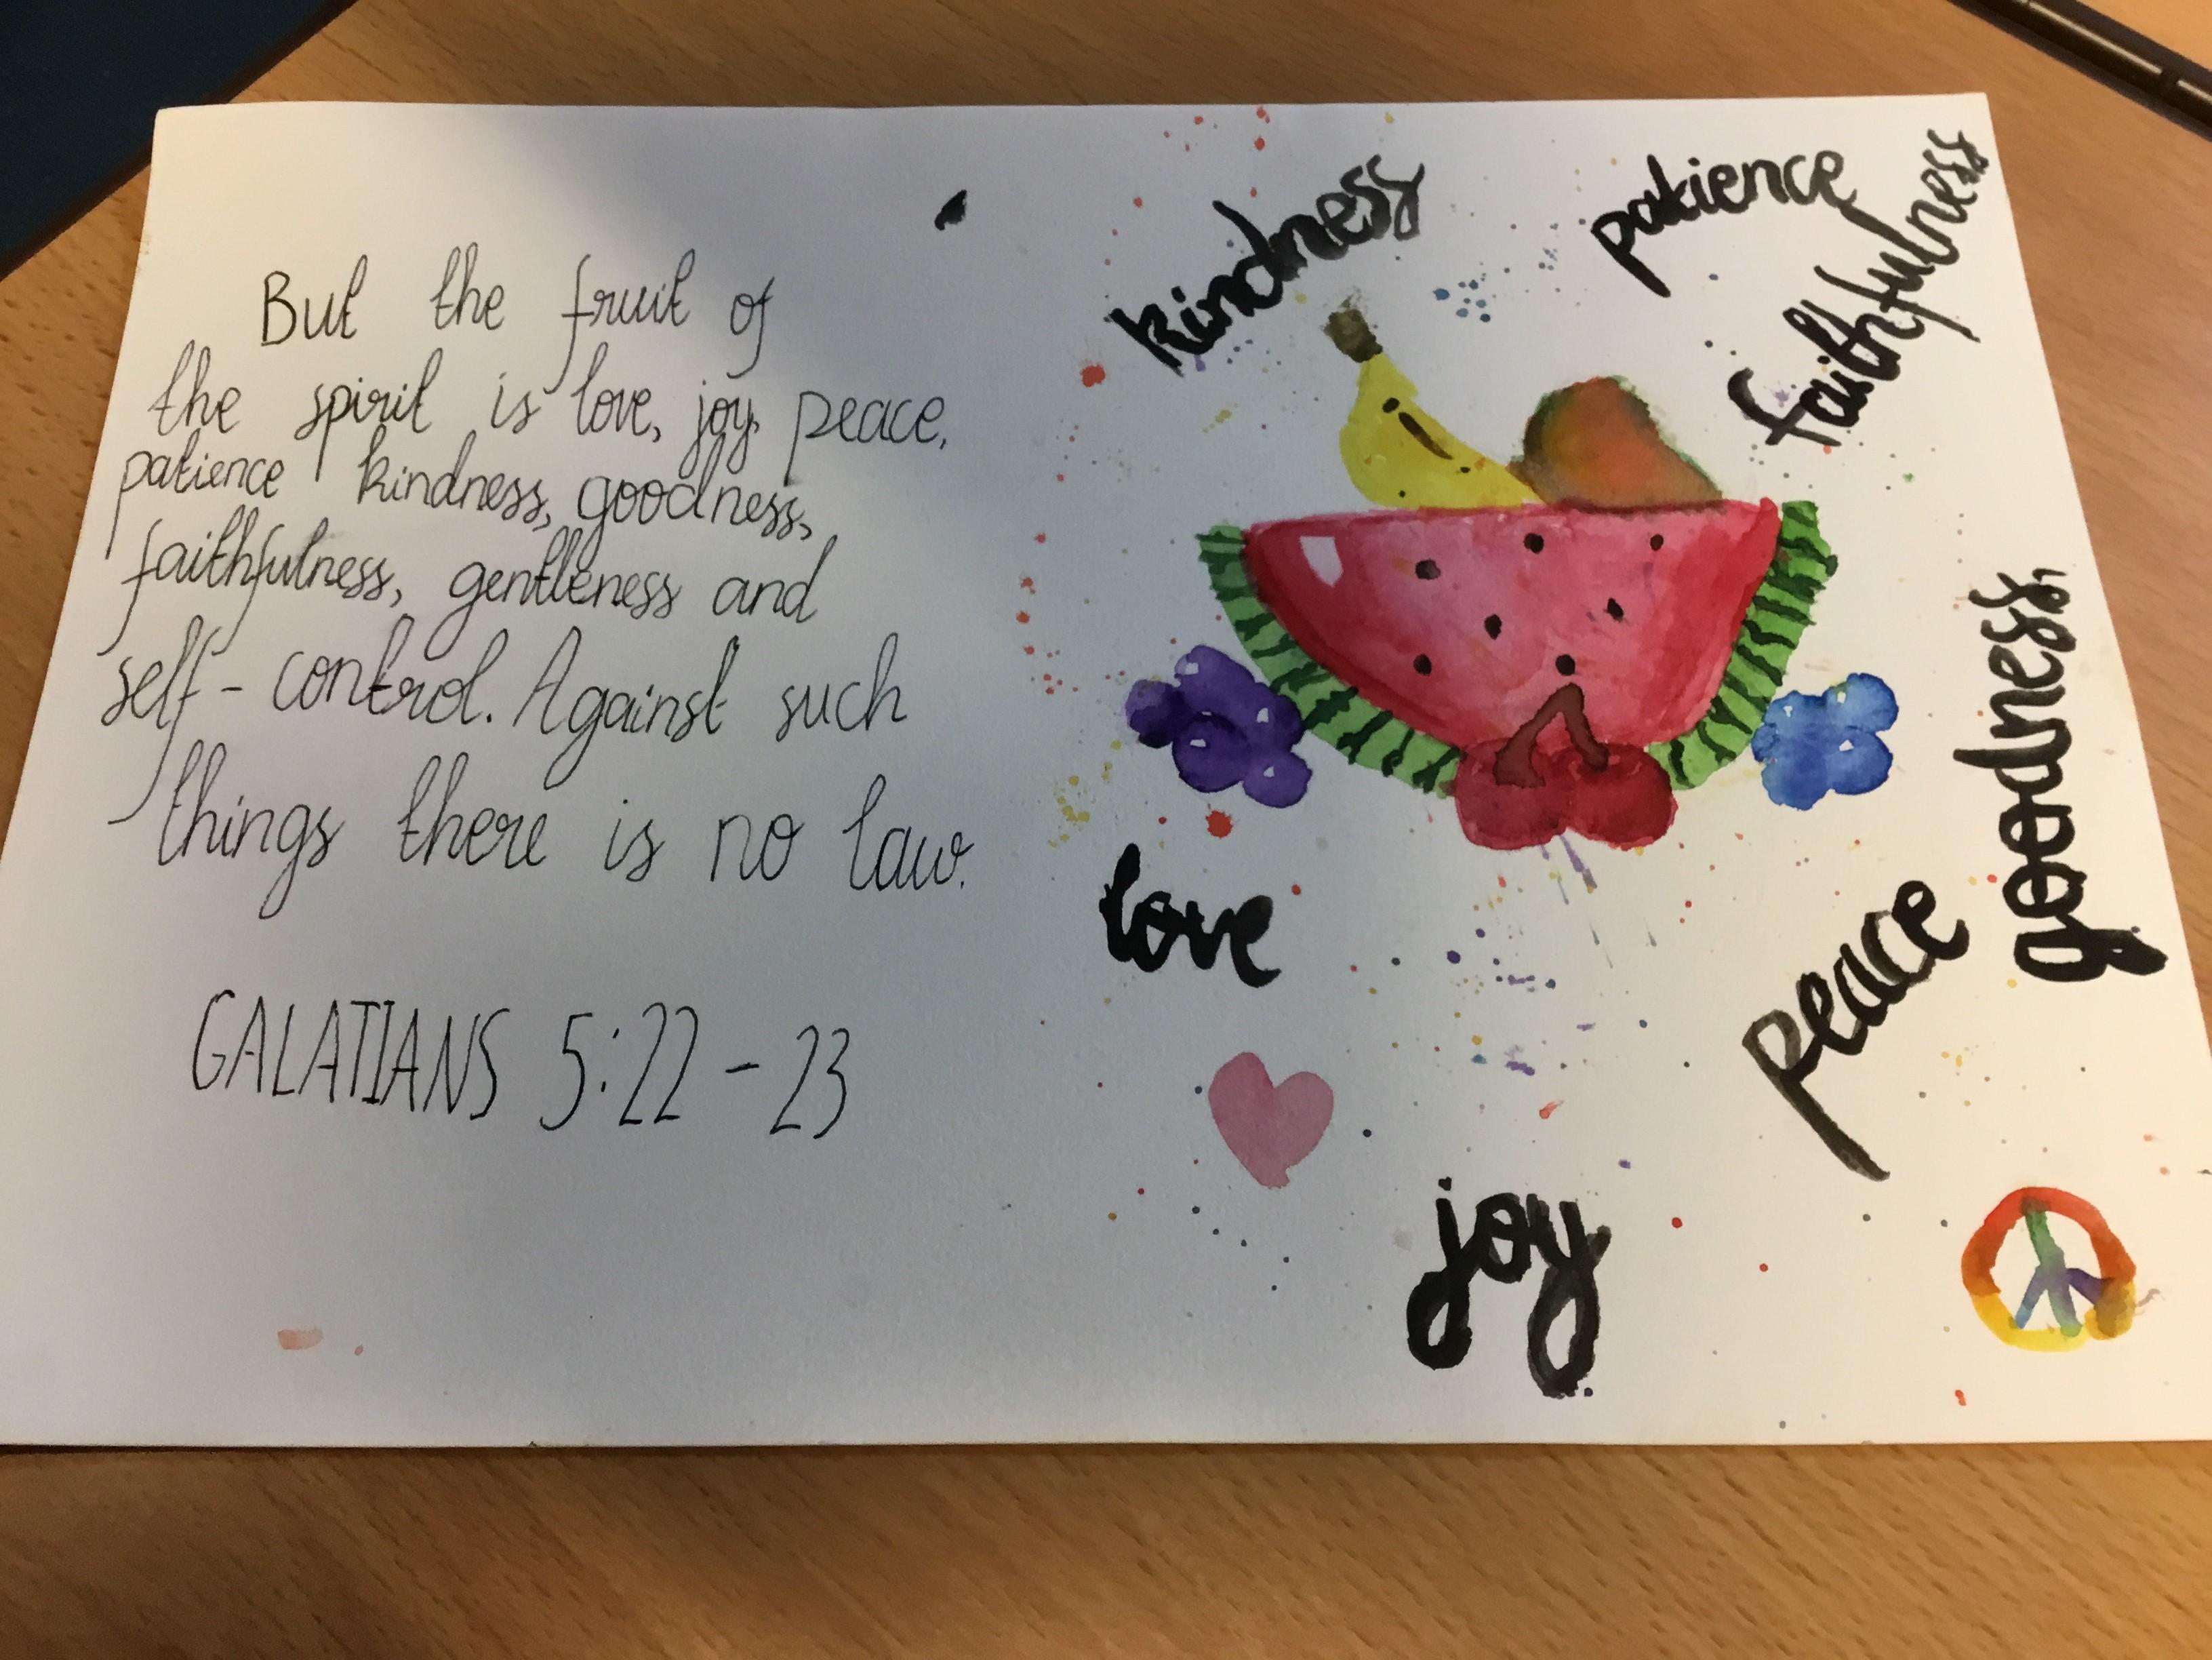 But the fruit of
the spirit is love, joy, peace,
patience kindness, goodness,
faithfulness, gentleness and
self-control. Against such
things there is no law.
GALATIANS 5:22-23
kindness
patience
faithfulness
goodness,
love
peace
joy